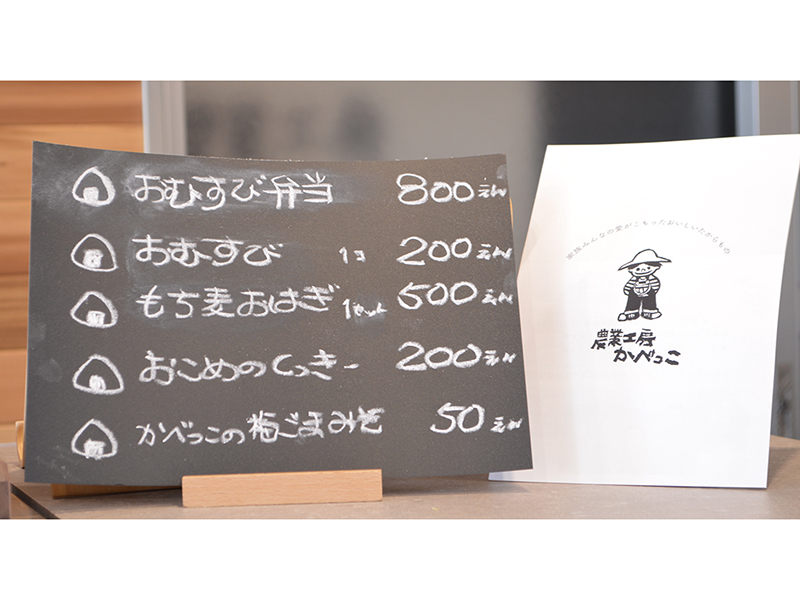 おむすび弁当 800えん
おむすび 1コ 200えん
もち麦おはぎ 1セット 500えん
おこめのくっきー 200えん
かべっこの梅ごまみそ 50えん
家族みんなの愛がこもったおいしいたからもの
農業工房
かべっこ